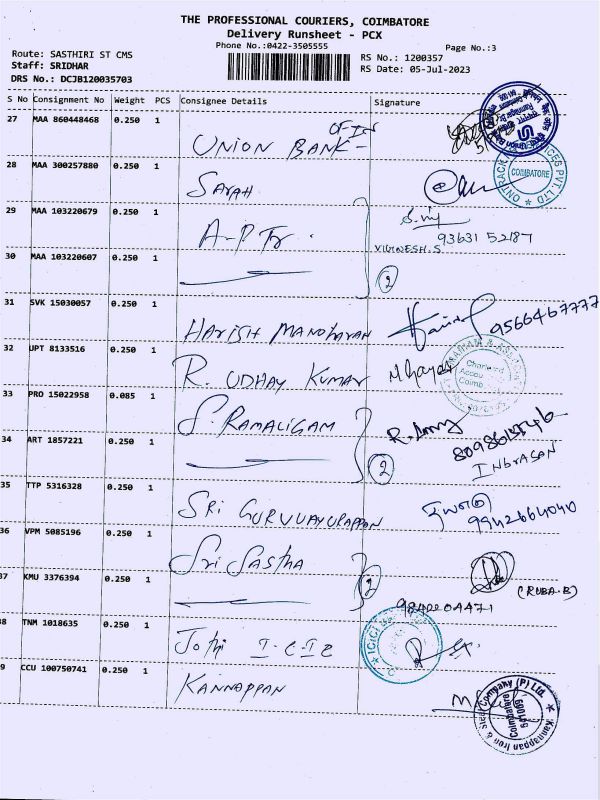 THE PROFESSIONAL COURIERS, COIMBATORE
Delivery Runsheet - PCX
Phone No.:0422-3505555
Page No.:3
Route: SASTHIRI ST CMS
RS No.: 1200357
Staff: SRIDHAR
RS Date: 05-Jul-2023
DRS No.: DCJB120035703
S No Consignment No Weight PCS Consignee Details Signature
27 MAA 860448468 0.250 1
UNION BANK -
28 MAA 300257880 0.250 1
SARAH
COIMBATORE
29 MAA 103220679 0.250 1
93631 52187
VIGNESH.S
30 MAA 103220607 0.250 1
2
31 SVK 15030057 0.250 1
HARISH MANOHARAN
9566467777
32 UPT 8133516 0.250 1
R. UDHAY KUMAR
33 PRO 15022958 0.085 1
S. RAMALIGAM
34 ART 1857221 0.250 1
2
INBRASAN
35 TTP 5316328 0.250 1
SRI GURUVAYURAPPAN
9942664040
36 VPM 5085196 0.250 1
Sri SASTHA
2
(RUBA.B)
37 KMU 3376394 0.250 1
9842204471
38 TNM 1018635 0.250 1
Jothi
ICICI
39 CCU 100750741 0.250 1
KANNAPPAN
Kannappan Iron & Steel Company (P) Ltd.
Coimbatore
641 009